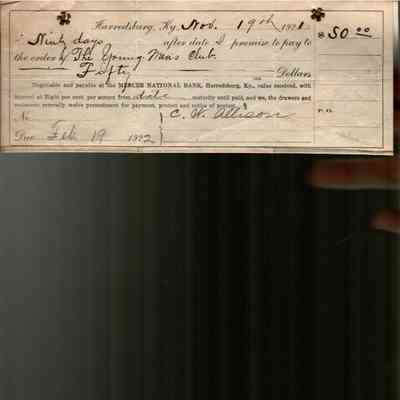 Harrodsburg, Ky., Nov. 19th 1921 $ 50 00
Ninty days after date I promise to pay to
the order of The Young Mens Club.
Fifty Dollars
Negotiable and payable at the MERCER NATIONAL BANK, Harrodsburg, Ky., value received, with
interest at Eight per cent. per annum from date maturity until paid, and we, the drawers and
endorsers severally, waive presentment for payment, protest and notice of protest.
No C. W. Allison
Due Feb 19 1922
P. O.